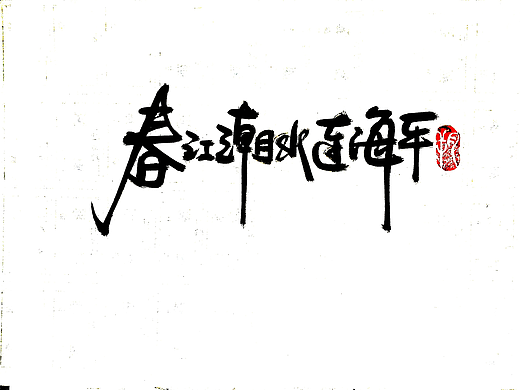 春江潮水连海平